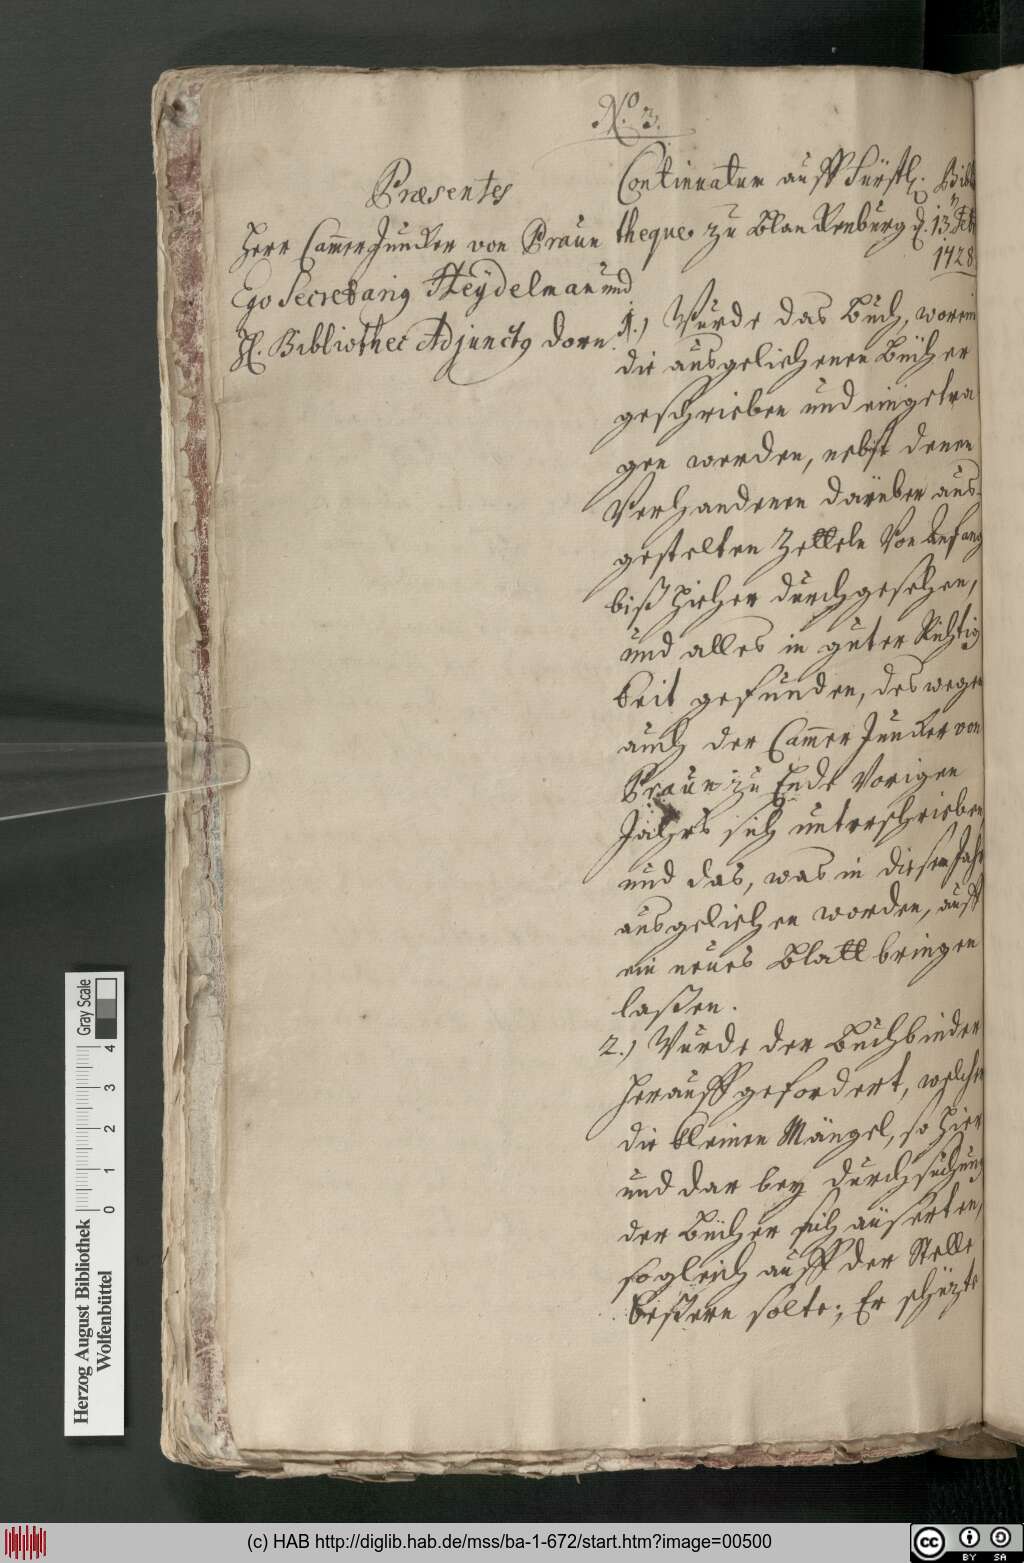 No. 3.
Præsentes
Herr CammerJuncker von Praun
Ego Secretarius Heÿdelman und
H. Bibliothec Adjunctus Dorn.
Continuatum auff Fürstl. Biblio
theque zu Blanckenburg d. 13. Feb.
1728
1.) Wurde das Buch, worein
die ausgeliehenen Bücher
geschrieben und eingetra
gen werden, nebst denen
Verhandenen darüber aus-
gestelten Zetteln Von Anfang
biß hieher durchgesehen,
und alles in guter Richtig
keit gefunden, deswegen
auch der CammerJuncker von
Praun zu Ende Vorigen
Jahrs sich unterschrieben
und das, was in diesem Jahr
ausgeliehen worden, auff
ein neues Blatt bringen
laßen.
2.) Wurde der Buchbinder
herauffgefordert, welcher
die kleinen Mängel, so hier
und dar bey durchsuchung
der Bücher sich äuserten,
sogleich auff der Stelle
beßern solte; Er schüzte
Gray Scale
0 1 2 3 4
Herzog August Bibliothek
Wolfenbüttel
(c) HAB http://diglib.hab.de/mss/ba-1-672/start.htm?image=00500
cc BY SA